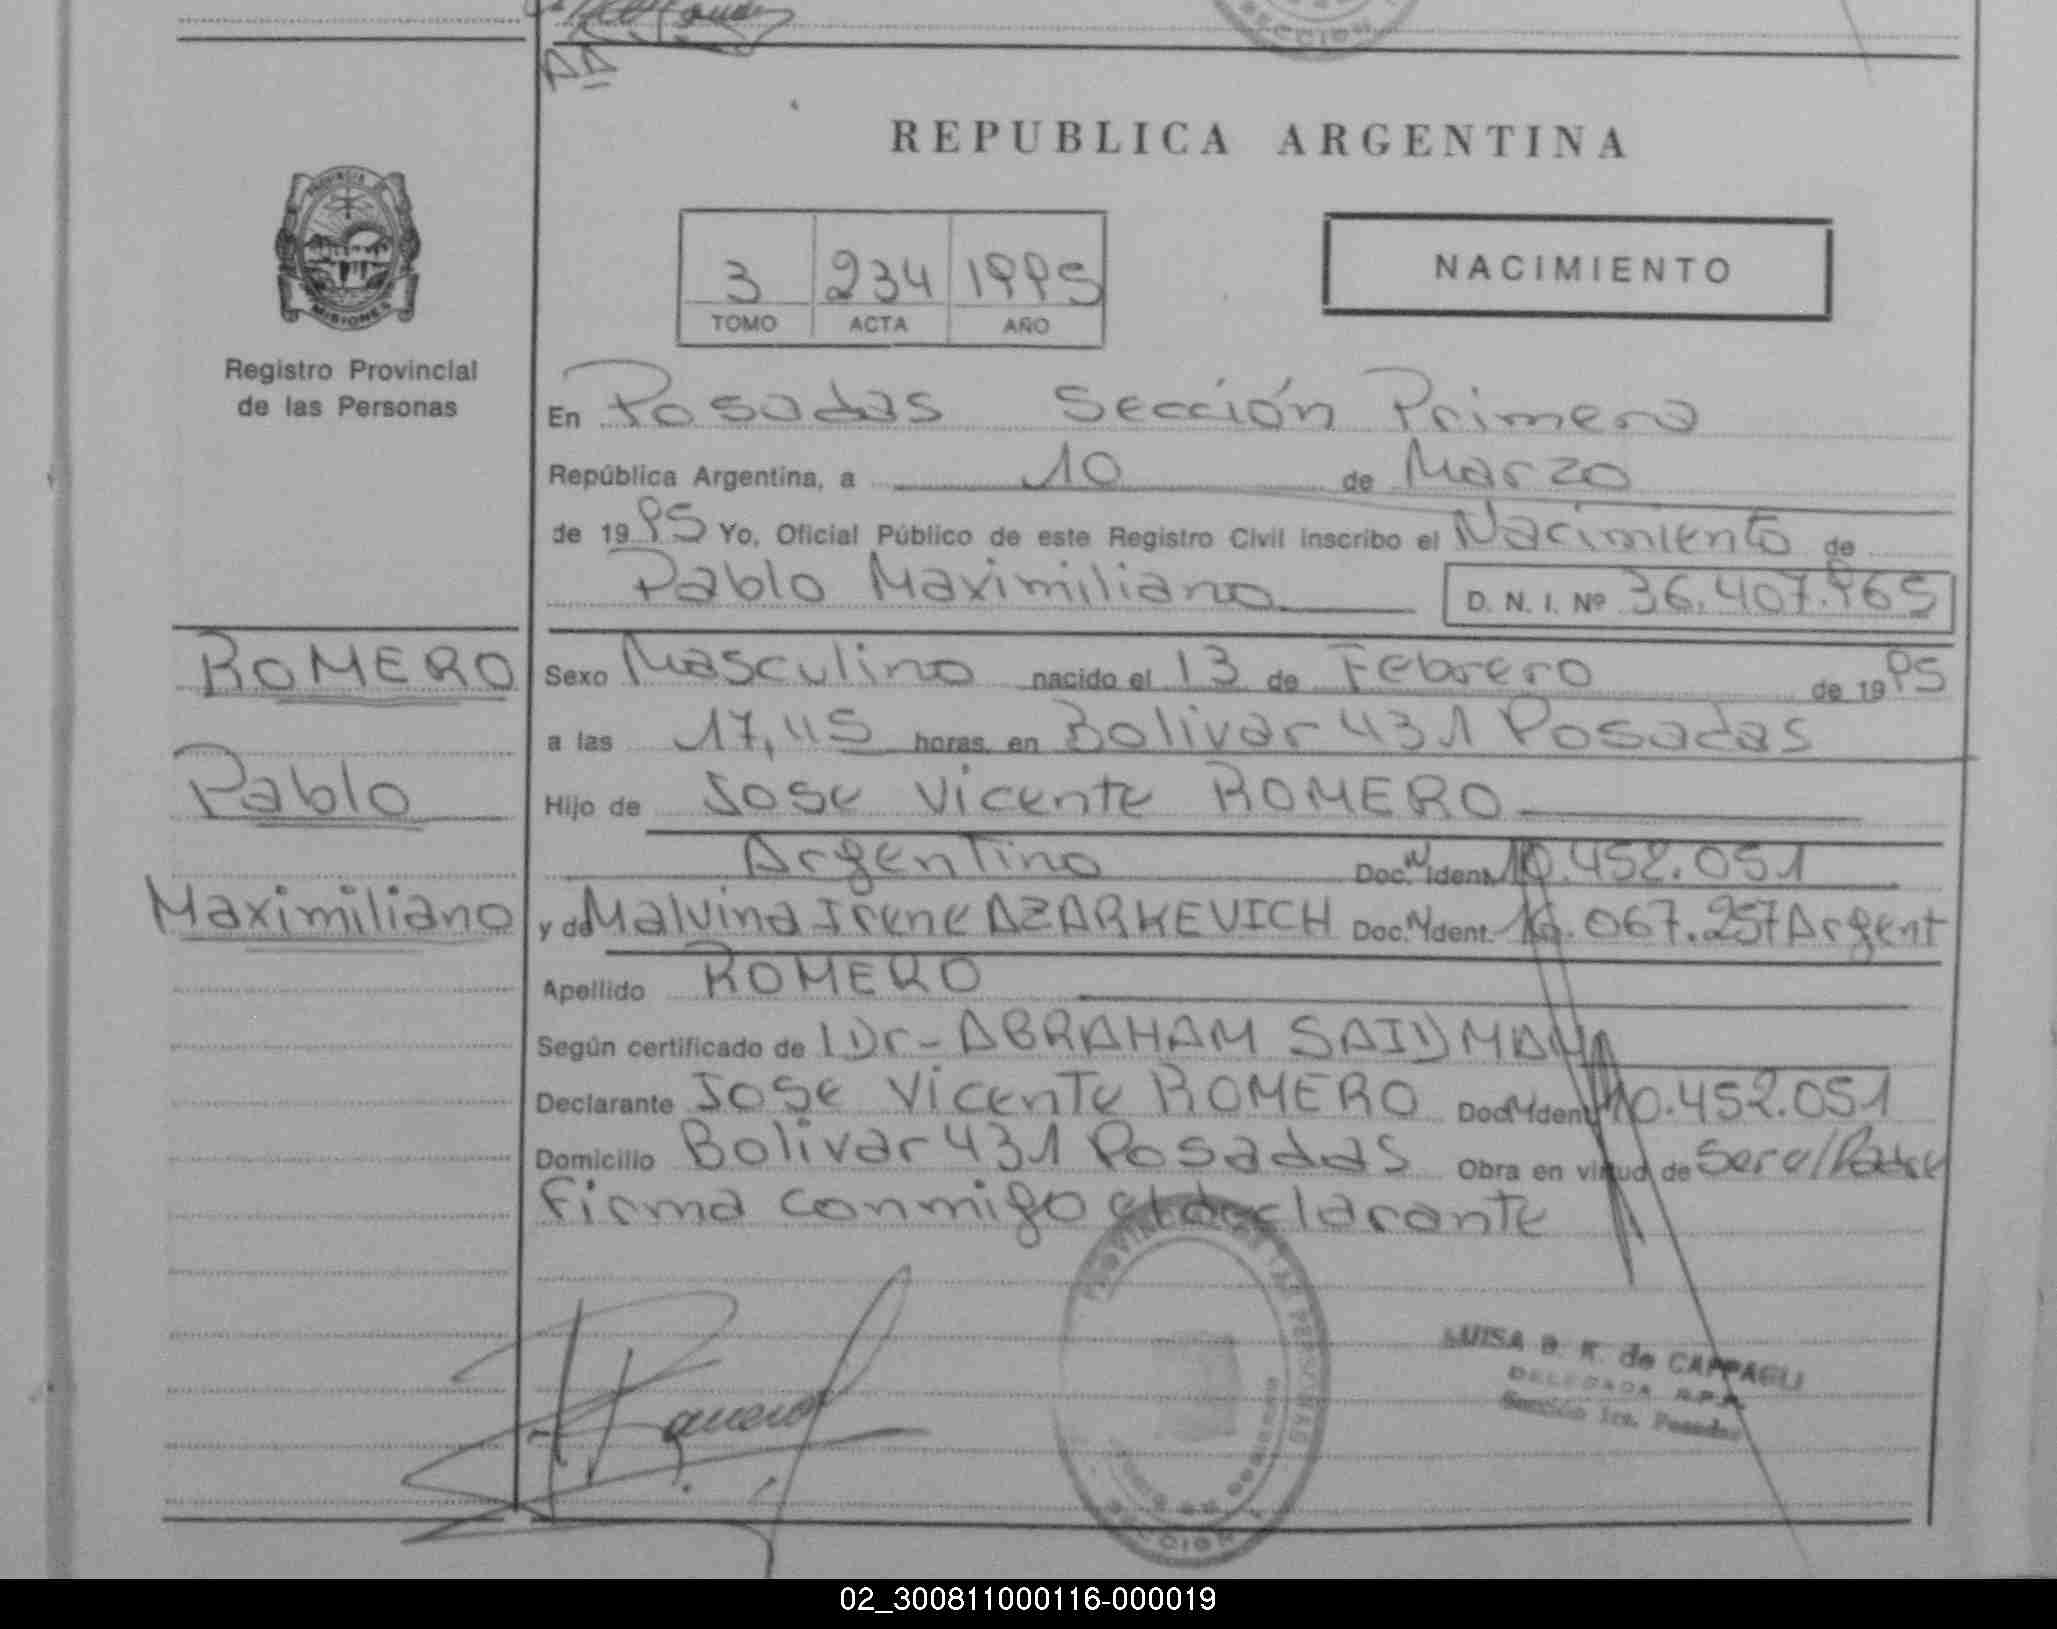 REPUBLICA ARGENTINA
PROVINCIA DE
MISIONES
3 234 1995
TOMO ACTA AÑO
NACIMIENTO
Registro Provincial
de las Personas
En Posadas Sección Primera
República Argentina, a 10 de Marzo
de 1995 Yo, Oficial Público de este Registro Civil inscribo el Nacimiento de
Pablo Maximiliano D. N. I. Nº 36.407.965
ROMERO
Pablo
Maximiliano
Sexo Masculino nacido el 13 de Febrero de 1995
a las 17,45 horas, en Bolivar 431 Posadas
Hijo de Jose Vicente ROMERO
Argentino Doc. N Ident. 10.452.051
y de Malvina Irene AZARKEVICH Doc. N Ident. 16.067.257 Argent
Apellido ROMERO
Según certificado de Dr- ABRAHAM SAIDMAN
Declarante Jose Vicente ROMERO Doc N Ident 10.452.051
Domicilio Bolivar 431 Posadas Obra en virtud de Ser el Padre
Firma conmigo el declarante
LUISA B. K. de CAPPAGLI
DELEGADA R.P.P.
Sección 1ra. Posadas
SECCION
02_300811000116-000019